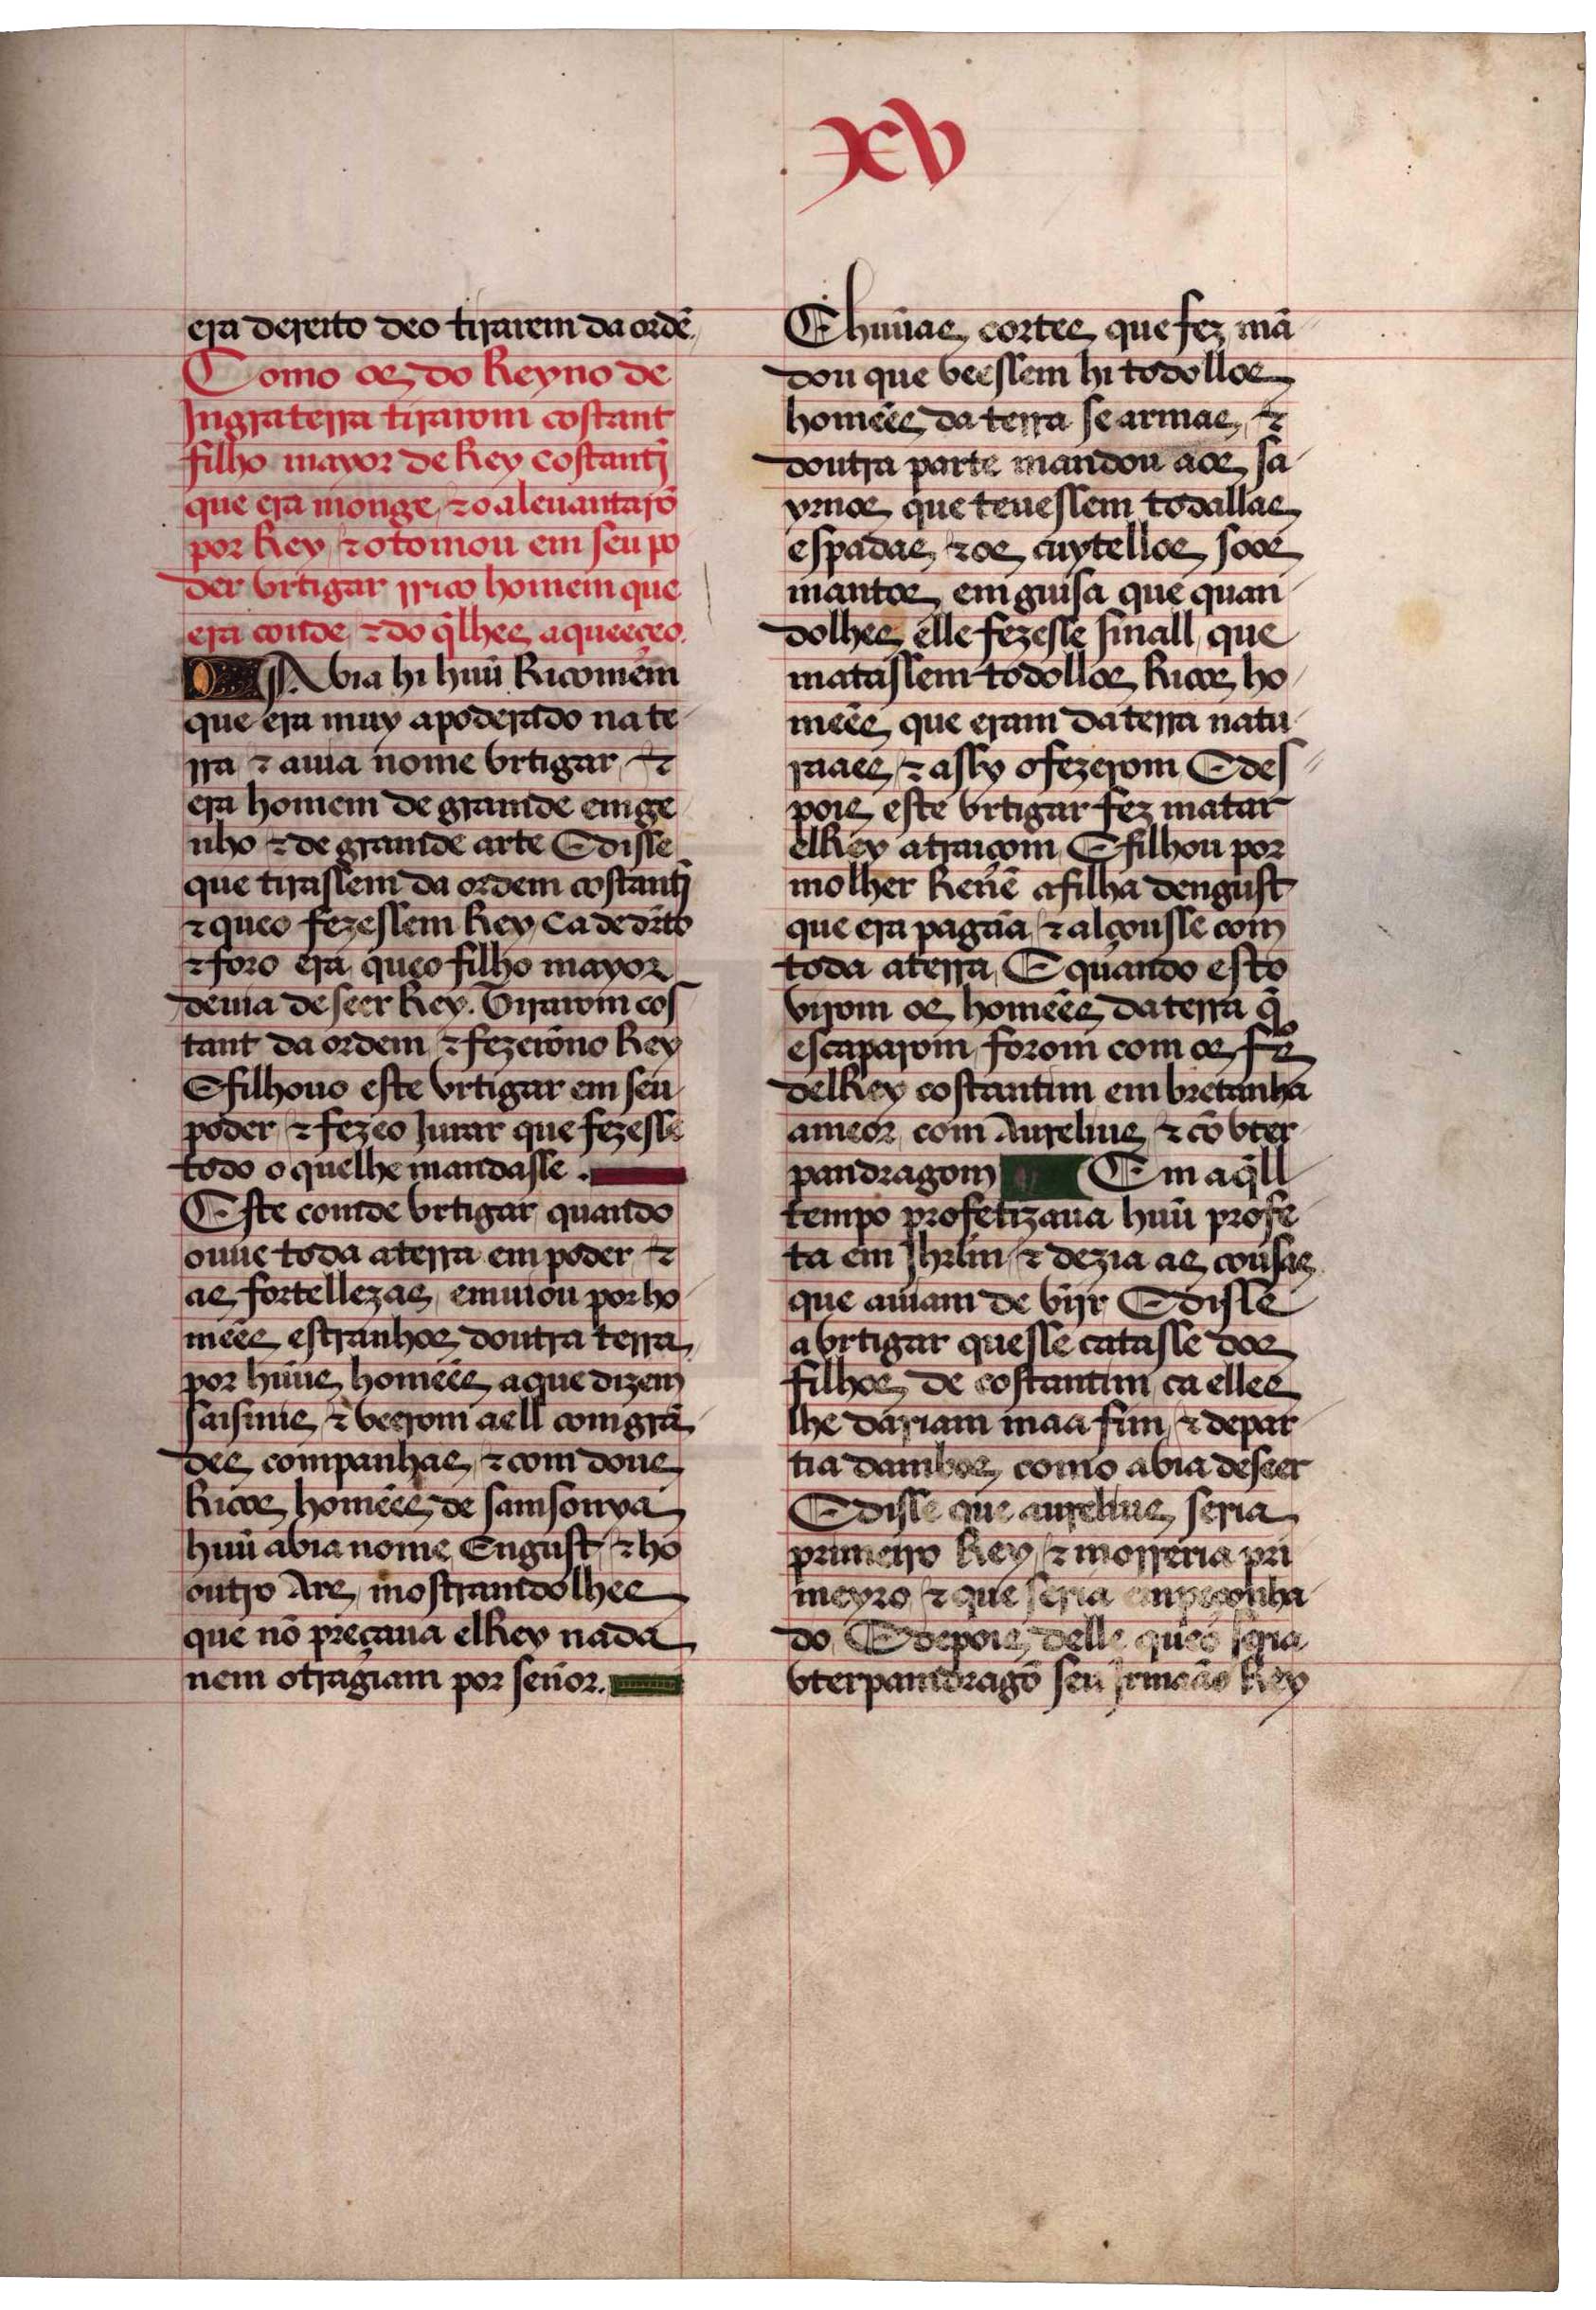 xv
era dereito deo tirarem da ordē.
Como os do Reyno de
Ingraterra tirarom costant
filho mayor de Rey Costantĩ
que era monge, ⁊ o aleuantarõ
por Rey, ⁊ o tomou em seu po
der vrtigar rrico homem que
era conde, ⁊ do q̃ lhes aqueeçeo.
Avia hi huũ Ricomem
que era muy apoderado na te
rra ⁊ auia nome vrtigar, ⁊
era homem de grande enge
nho ⁊ de grande arte E disse
que tirassem da ordem costantĩ
⁊ queo fezessem Rey, Ca de dr̃to
⁊ foro era, queo filho mayor
deuia de seer Rey. Tirarom cos
tant da ordem, ⁊ fezerõno Rey
E filhouo este vrtigar em seu
poder, ⁊ fezeo Jurar que fezesse
todo o que lhe mandasse.
Este conde vrtigar, quando
ouue toda a terra em poder, ⁊
as fortellezas, emuiou por ho
mẽes estranhos doutra terra,
por hũus homẽes a que dizem
saisnus, ⁊ veerom a ell com grã
des companhas, ⁊ com dous
Ricos homẽes de samsonya
huũ abia nome Engust, ⁊ ho
outro Are, mostrandolhes
que nõ preçaua elRey nada
nem o tragiam por señor.
E hũuas cortes que fez mã
dou que veessem hi todollos
homẽes da terra se armas, ⁊
doutra parte mandou aos sa
ymos que teuessem todallas
espadas, ⁊ os cuytellos soos
mantos em guisa que quan
dolhes elle fezesse sinall, que
matassem todollos Ricos ho
mẽes que eram da terra natu
raaes, ⁊ assy o fezerom E des
pois este vrtigar fez matar
elRey a traiçom, E filhou por
molher Reñē a filha dengust
que era pagãa, ⁊ alçousse com
toda a terra, E quando esto
virom os homẽes da terra q̃
escaparom, forom com os fr̃os
delRey costantim em bretanha
ameor, com Aurelius, ⁊ cõ vter
pandragom Em aq̃ll
tempo profetizaua huũ profe
ta em Jhrlm, ⁊ dezia as cousas
que auiam de vijr E disse
a vrtigar quesse catasse dos
filhos de costantim, ca elles
lhe dariam maa fim, ⁊ depar
tia dambos como abia de seer
E disse que aurelius seria
primeiro Rey, ⁊ morreria pri
meyro, ⁊ que seria empeçonha
do, E depois delle queo seria
vterpamdragõ seu Jrmaão Rey